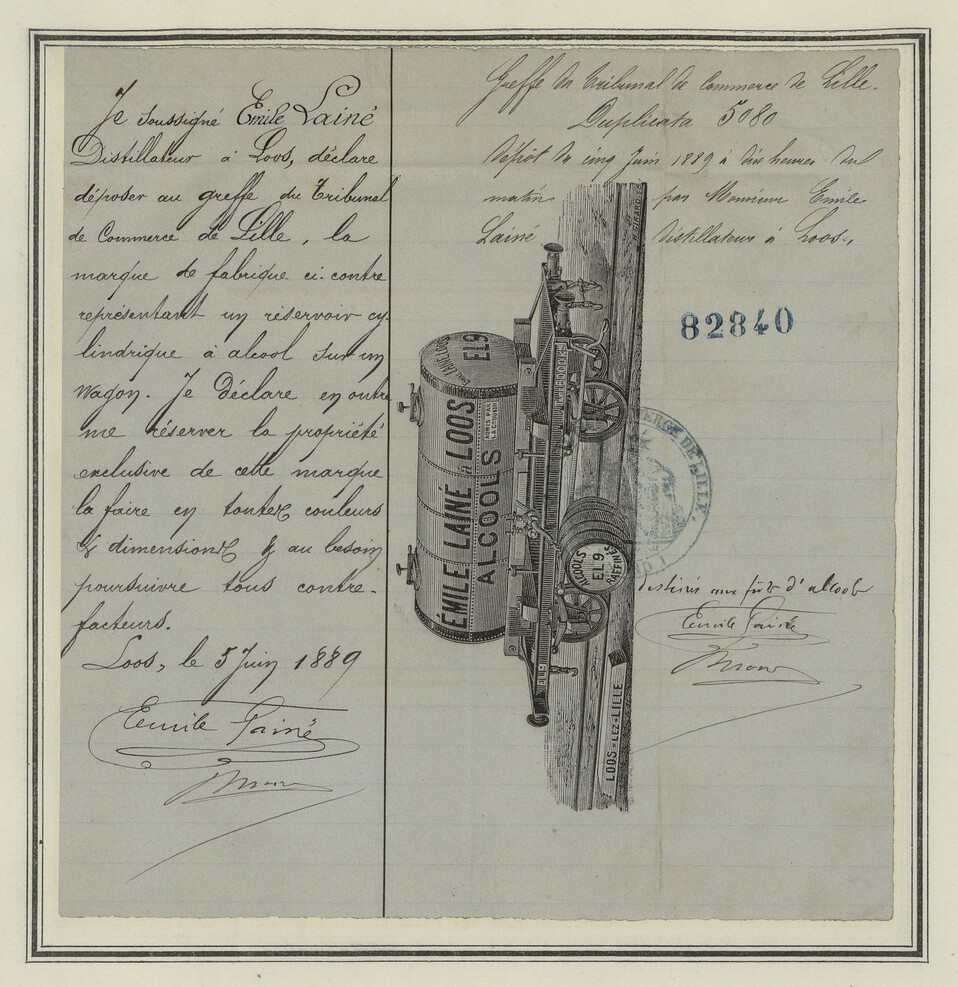 Je soussigné Emile Lainé
Distillateur à Loos, déclare
déposer au greffe du Tribunal
de Commerce de Lille, la
marque de fabrique ci-contre
représentant un réservoir cy-
lindrique à alcool sur un
Wagon. Je Déclare en outre
me réserver la propriété
exclusive de cette marque
la faire en toutes couleurs
& dimensions & au besoin
poursuivre tous contre-
facteurs.
Loos, le 5 Juin 1889
Emile Lainé
Greffe du Tribunal de Commerce de Lille.
Duplicata 5080
Dépôt du cinq Juin 1889 à dix heures du
matin par Monsieur Emile
Lainé Distillateur à Loos.,
82840
H. GIRARD
EMILE LAINÉ LOOS
EL9
ÉMILE LAINÉ à LOOS
ALCOOLS
ADMIS PAR
ALCOOLS
EL9
RAFFINÉS
LOOS-LEZ-LILLE
COMMERCE DE LILLE.
destinés aux fûts d'alcools
Emile Lainé